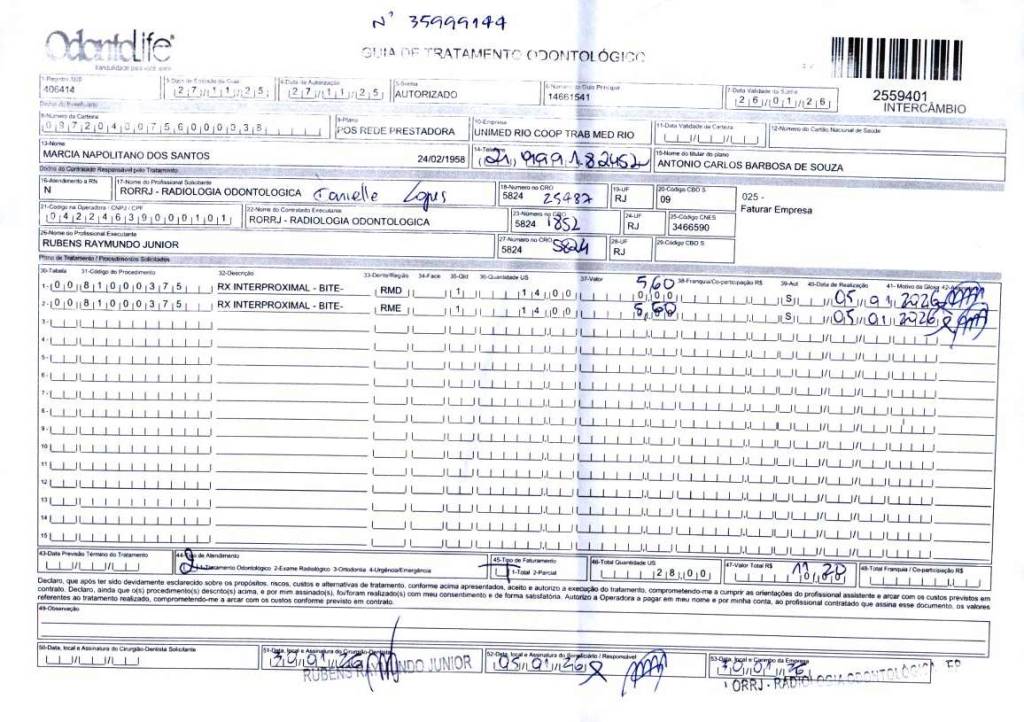 N° 35999144
OdontoLife
tranquilidade para você sorrir
GUIA DE TRATAMENTO ODONTOLÓGICO
2559401
INTERCÂMBIO
1-Registro ANS
406414
3-Data de Emissão da Guia
27/11/25
4-Data de Autorização
27/11/25
5-Senha
AUTORIZADO
6-Número da Guia Principal
14661541
7-Data Validade da Senha
26/01/26
Dados do Beneficiário
8-Número da Carteira
0972040075600038
9-Plano
POS REDE PRESTADORA
10-Empresa
UNIMED RIO COOP TRAB MED RIO
11-Data Validade da Carteira
12-Número do Cartão Nacional de Saúde
13-Nome
MARCIA NAPOLITANO DOS SANTOS
24/02/1958
14-Telefone
(21) 999182452
15-Nome do titular do plano
ANTONIO CARLOS BARBOSA DE SOUZA
Dados do Contratado Responsável pelo Tratamento
16-Atendimento a RN
N
17-Nome do Profissional Solicitante
RORRJ - RADIOLOGIA ODONTOLOGICA Danielle Lopes
18-Número no CRO
5824 25487
19-UF
RJ
20-Código CBO S
09
025 -
Faturar Empresa
21-Código na Operadora / CNPJ / CPF
04224639000101
22-Nome do Contratado Executante
RORRJ - RADIOLOGIA ODONTOLOGICA
23-Número no CRO
5824 1852
24-UF
RJ
25-Código CNES
3466590
26-Nome do Profissional Executante
RUBENS RAYMUNDO JUNIOR
27-Número no CRO
5824 5824
28-UF
RJ
29-Código CBO S
Plano de Tratamento / Procedimentos Solicitados
30-Tabela 31-Código do Procedimento 32-Descrição 33-Dente/Região 34-Face 35-Qtd 36-Quantidade US 37-Valor 38-Franquia/Co-participação R$ 39-Aut 40-Data de Realização 41- Motivo da Glosa 42-
1- 00 81000375 RX INTERPROXIMAL - BITE- RMD 1 14 00 5,60 0 00 S 05 01 2026
2- 00 81000375 RX INTERPROXIMAL - BITE- RME 1 14 00 5,60 S 05 01 2026
3-
4-
5-
6-
7-
8-
9-
10
11
12
13
14
15
43-Data Previsão Término do Tratamento
44-Tipo de Atendimento
2 1-Tratamento Odontológico 2-Exame Radiológico 3-Ortodontia 4-Urgência/Emergência
45-Tipo de Faturamento
1-Total 2-Parcial
46-Total Quantidade US
28,00
47-Valor Total R$
11,20
48-Total Franquia / Co-participação R$
Declaro, que após ter sido devidamente esclarecido sobre os propósitos, riscos, custos e alternativas de tratamento, conforme acima apresentados, aceito e autorizo a execução do tratamento, comprometendo-me a cumprir as orientações do profissional assistente e arcar com os custos previstos em
contrato. Declaro, ainda que o(s) procedimento(s) descrito(s) acima, e por mim assinado(s), foi/foram realizado(s) com meu consentimento e de forma satisfatória. Autorizo a Operadora a pagar em meu nome e por minha conta, ao profissional contratado que assina esse documento, os valores
referentes ao tratamento realizado, comprometendo-me a arcar com os custos conforme previsto em contrato.
49-Observação
50-Data, local e Assinatura do Cirurgião-Dentista Solicitante
51-Data, local e Assinatura do Cirurgião-Dentista
RUBENS RAYMUNDO JUNIOR
52-Data, local e Assinatura do Beneficiário / Responsável
05/01/26
53-Data, local e Carimbo da Empresa
ORRJ - RADIOLOGIA ODONTOLÓGICA EP